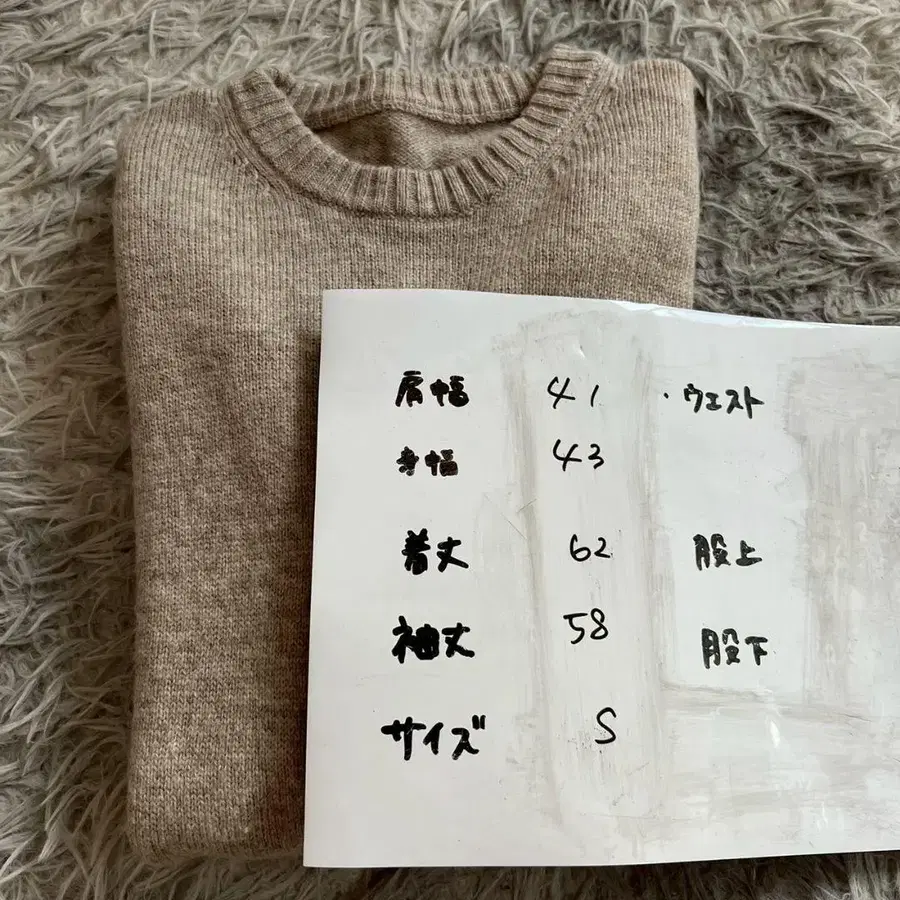 肩幅 41 ・ウエスト
身幅 43
着丈 62 股上
袖丈 58 股下
サイズ S